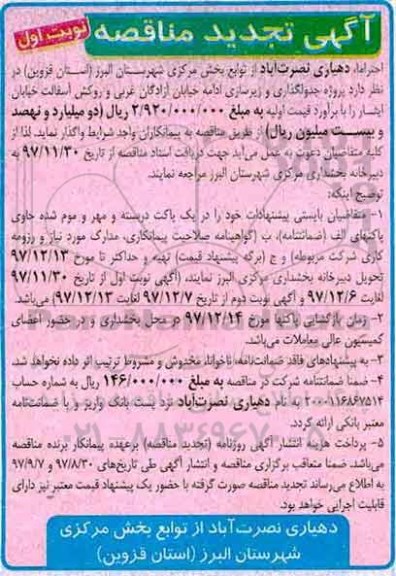 آگهی تجدید مناقصه
نوبت اول
احتراما، دهیاری نصرت‌آباد از توابع بخش مرکزی شهرستان البرز (استان قزوین) در
نظر دارد پروژه جدولگذاری و زیرسازی ادامه خیابان آزادگان غربی و روکش آسفالت خیابان
ایثار را با برآورد قیمت اولیه به مبلغ ۲/۹۲۰/۰۰۰/۰۰۰ ریال (دو میلیارد و نهصد
و بیست میلیون ریال) از طریق مناقصه به پیمانکاران واجد شرایط واگذار نماید. لذا از
کلیه متقاضیان دعوت به عمل می‌آید جهت دریافت اسناد مناقصه از تاریخ ۹۷/۱۱/۳۰ به
دبیرخانه بخشداری مرکزی شهرستان البرز مراجعه نمایند.
توضیح اینکه:
۱- متقاضیان بایستی پیشنهادات خود را در یک پاکت دربسته و مهر و موم شده حاوی
پاکتهای الف (ضمانتنامه)، ب (گواهینامه صلاحیت پیمانکاری، مدارک مورد نیاز و رزومه
کاری شرکت مربوطه) و ج (برگه پیشنهاد قیمت) تهیه و حداکثر تا مورخ ۹۷/۱۲/۱۳
تحویل دبیرخانه بخشداری مرکزی البرز نمایند، (آگهی نوبت اول از تاریخ ۹۷/۱۱/۳۰
لغایت ۹۷/۱۲/۶ و آگهی نوبت دوم از تاریخ ۹۷/۱۲/۷ لغایت ۹۷/۱۲/۱۳) می‌باشد.
۲- زمان بازگشایی پاکتها مورخ ۹۷/۱۲/۱۴ در محل بخشداری و در حضور اعضای
کمیسیون عالی معاملات می‌باشد.
۳- به پیشنهادهای فاقد ضمانت‌نامه، ناخوانا، مخدوش و مشروط ترتیب اثر داده نخواهد شد.
۴- ضمنا ضمانتنامه شرکت در مناقصه به مبلغ ۱۴۶/۰۰۰/۰۰۰ ریال به شماره حساب
به نام دهیاری نصرت‌آباد نزد پست بانک واریز و یا ضمانت‌نامه
معتبر بانکی ارائه گردد.
۵- پرداخت هزینه انتشار آگهی روزنامه (تجدید مناقصه) برعهده پیمانکار برنده مناقصه
می‌باشد. ضمنا متعاقب برگزاری مناقصه و انتشار آگهی طی تاریخ‌های ۹۷/۸/۳۰ و ۹۷/۹/۷
به اطلاع می‌رساند تجدید مناقصه صورت گرفته با حضور یک پیشنهاد قیمت معتبر نیز دارای
قابلیت اجرایی خواهد بود.
دهیاری نصرت‌آباد از توابع بخش مرکزی
شهرستان البرز (استان قزوین)